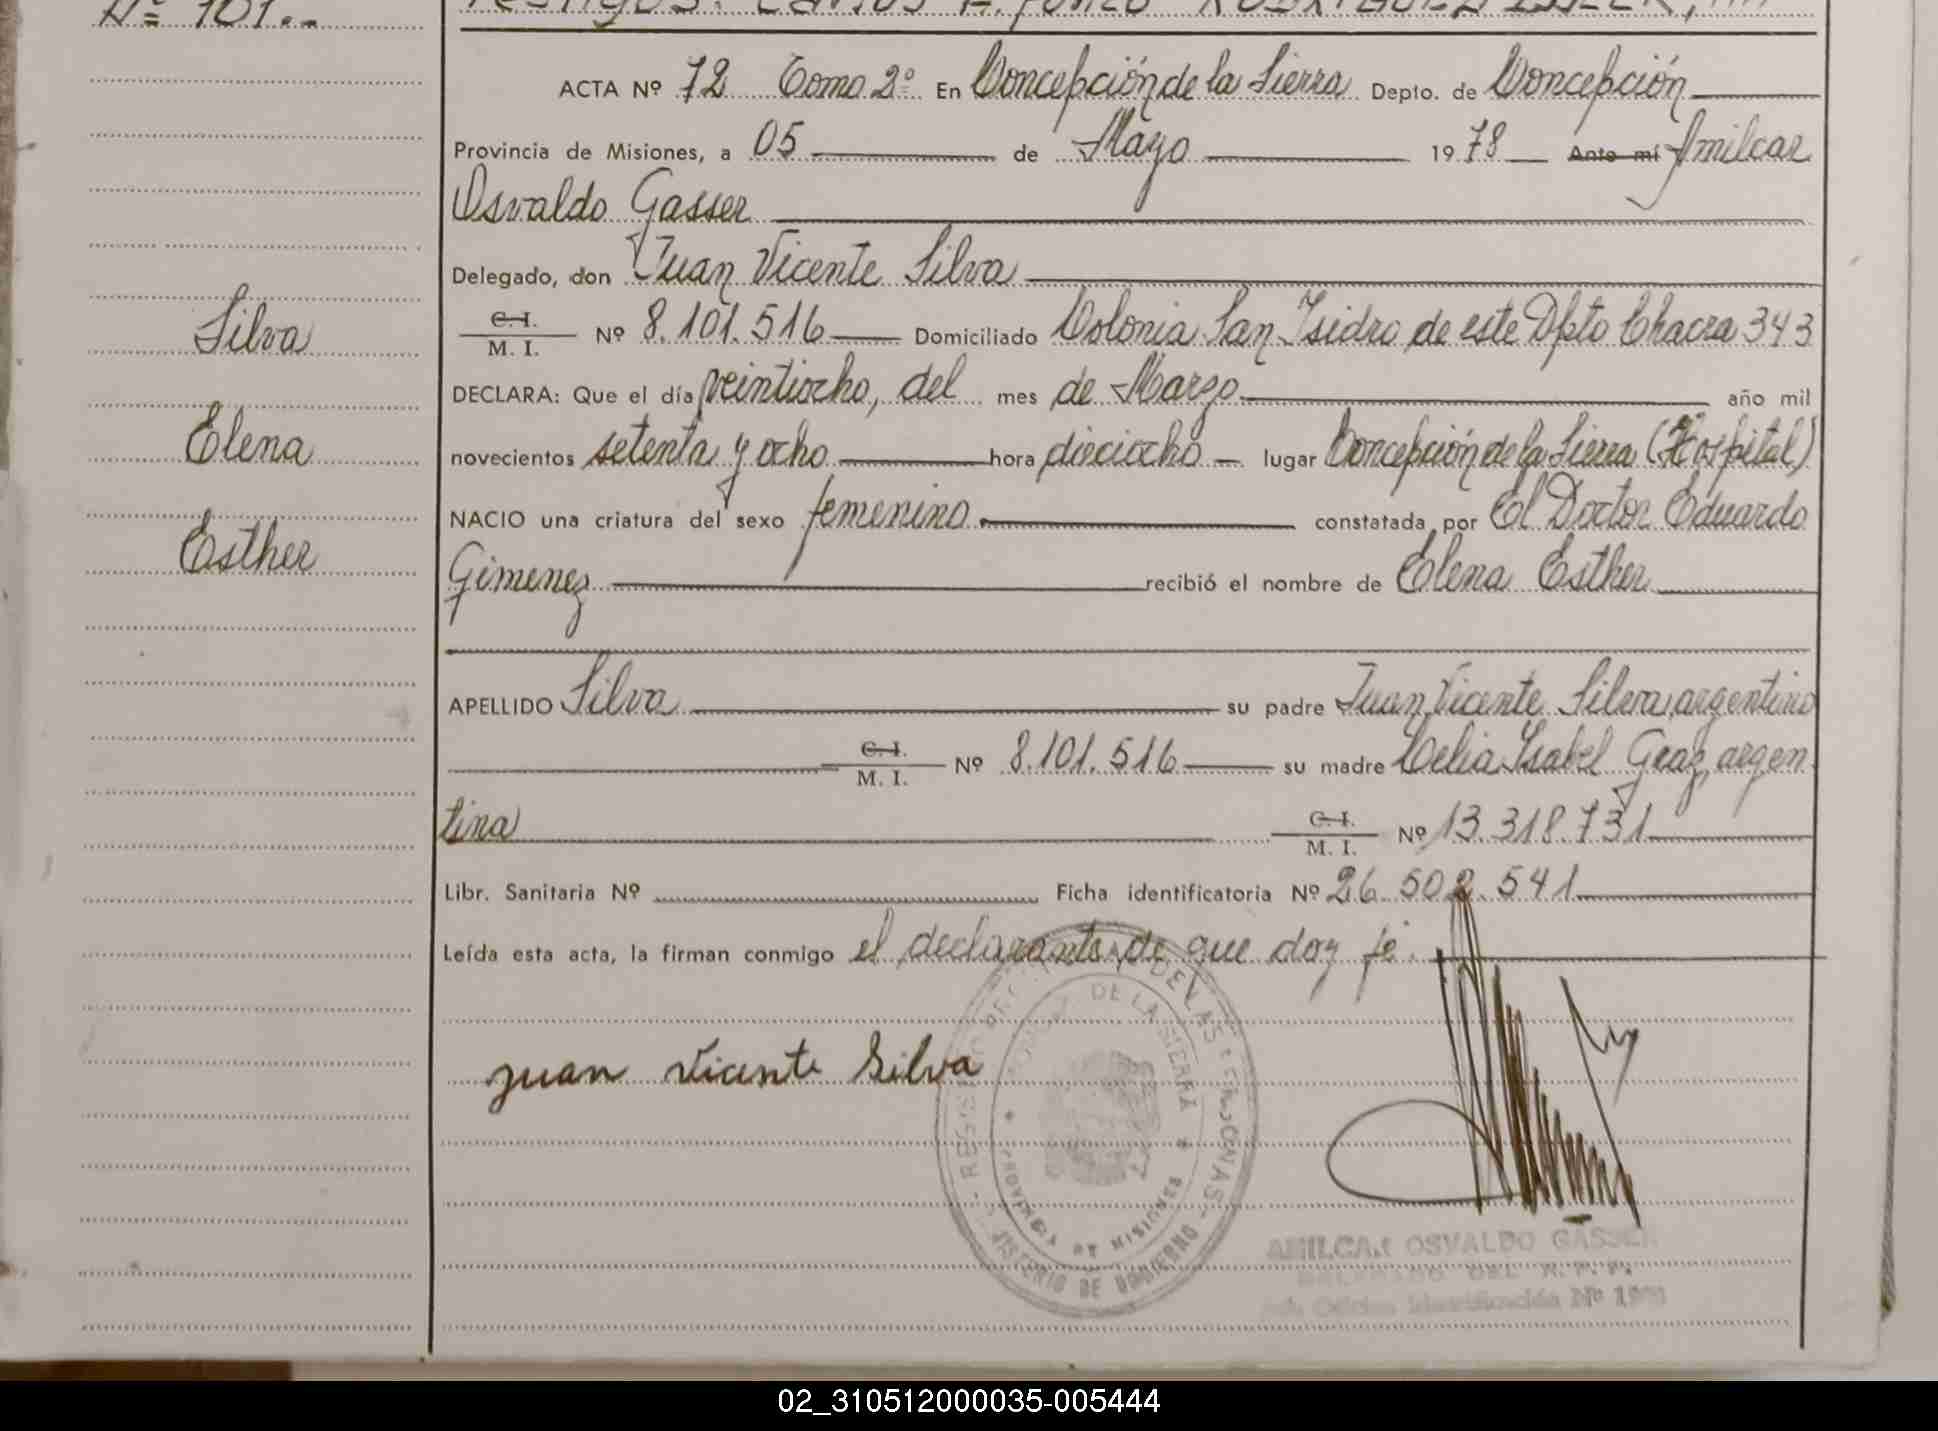 Nº 101.-
Testigos: Carlos
ACTA Nº 72 Tomo 2º En Concepción de la Sierra Depto. de Concepción
Provincia de Misiones, a 05 de Mayo 1978 Ante mí Amilcar
Osvaldo Gasser
Delegado, don Juan Vicente Silva
C. I.
M. I. Nº 8.101.516 Domiciliado Colonia San Isidro de este Dpto Chacra 343
DECLARA: Que el día veintiocho, del mes de Marzo año mil
novecientos setenta y ocho hora dieciocho lugar Concepción de la Sierra (Hospital)
NACIO una criatura del sexo femenino constatada por El Doctor Eduardo
Gimenez recibió el nombre de Elena Esther
APELLIDO Silva su padre Juan Vicente Silva, argentino
C. I.
M. I. Nº 8.101.516 su madre Celia Isabel Graz, argen
tina C. I.
M. I. Nº 13.318.731
Libr. Sanitaria Nº Ficha identificatoria Nº 26.502.541
Leída esta acta, la firman conmigo el declarante de que doy fé.
Silva
Elena
Esther
Juan Vicente Silva
DE LAS PERSONAS
DE LA SIERRA
PROVINCIA DE MISIONES
DE GOBIERNO
AMILCAR OSVALDO GASSER
DELEGADO DEL R. P. P.
Identificación Nº
02_310512000035-005444